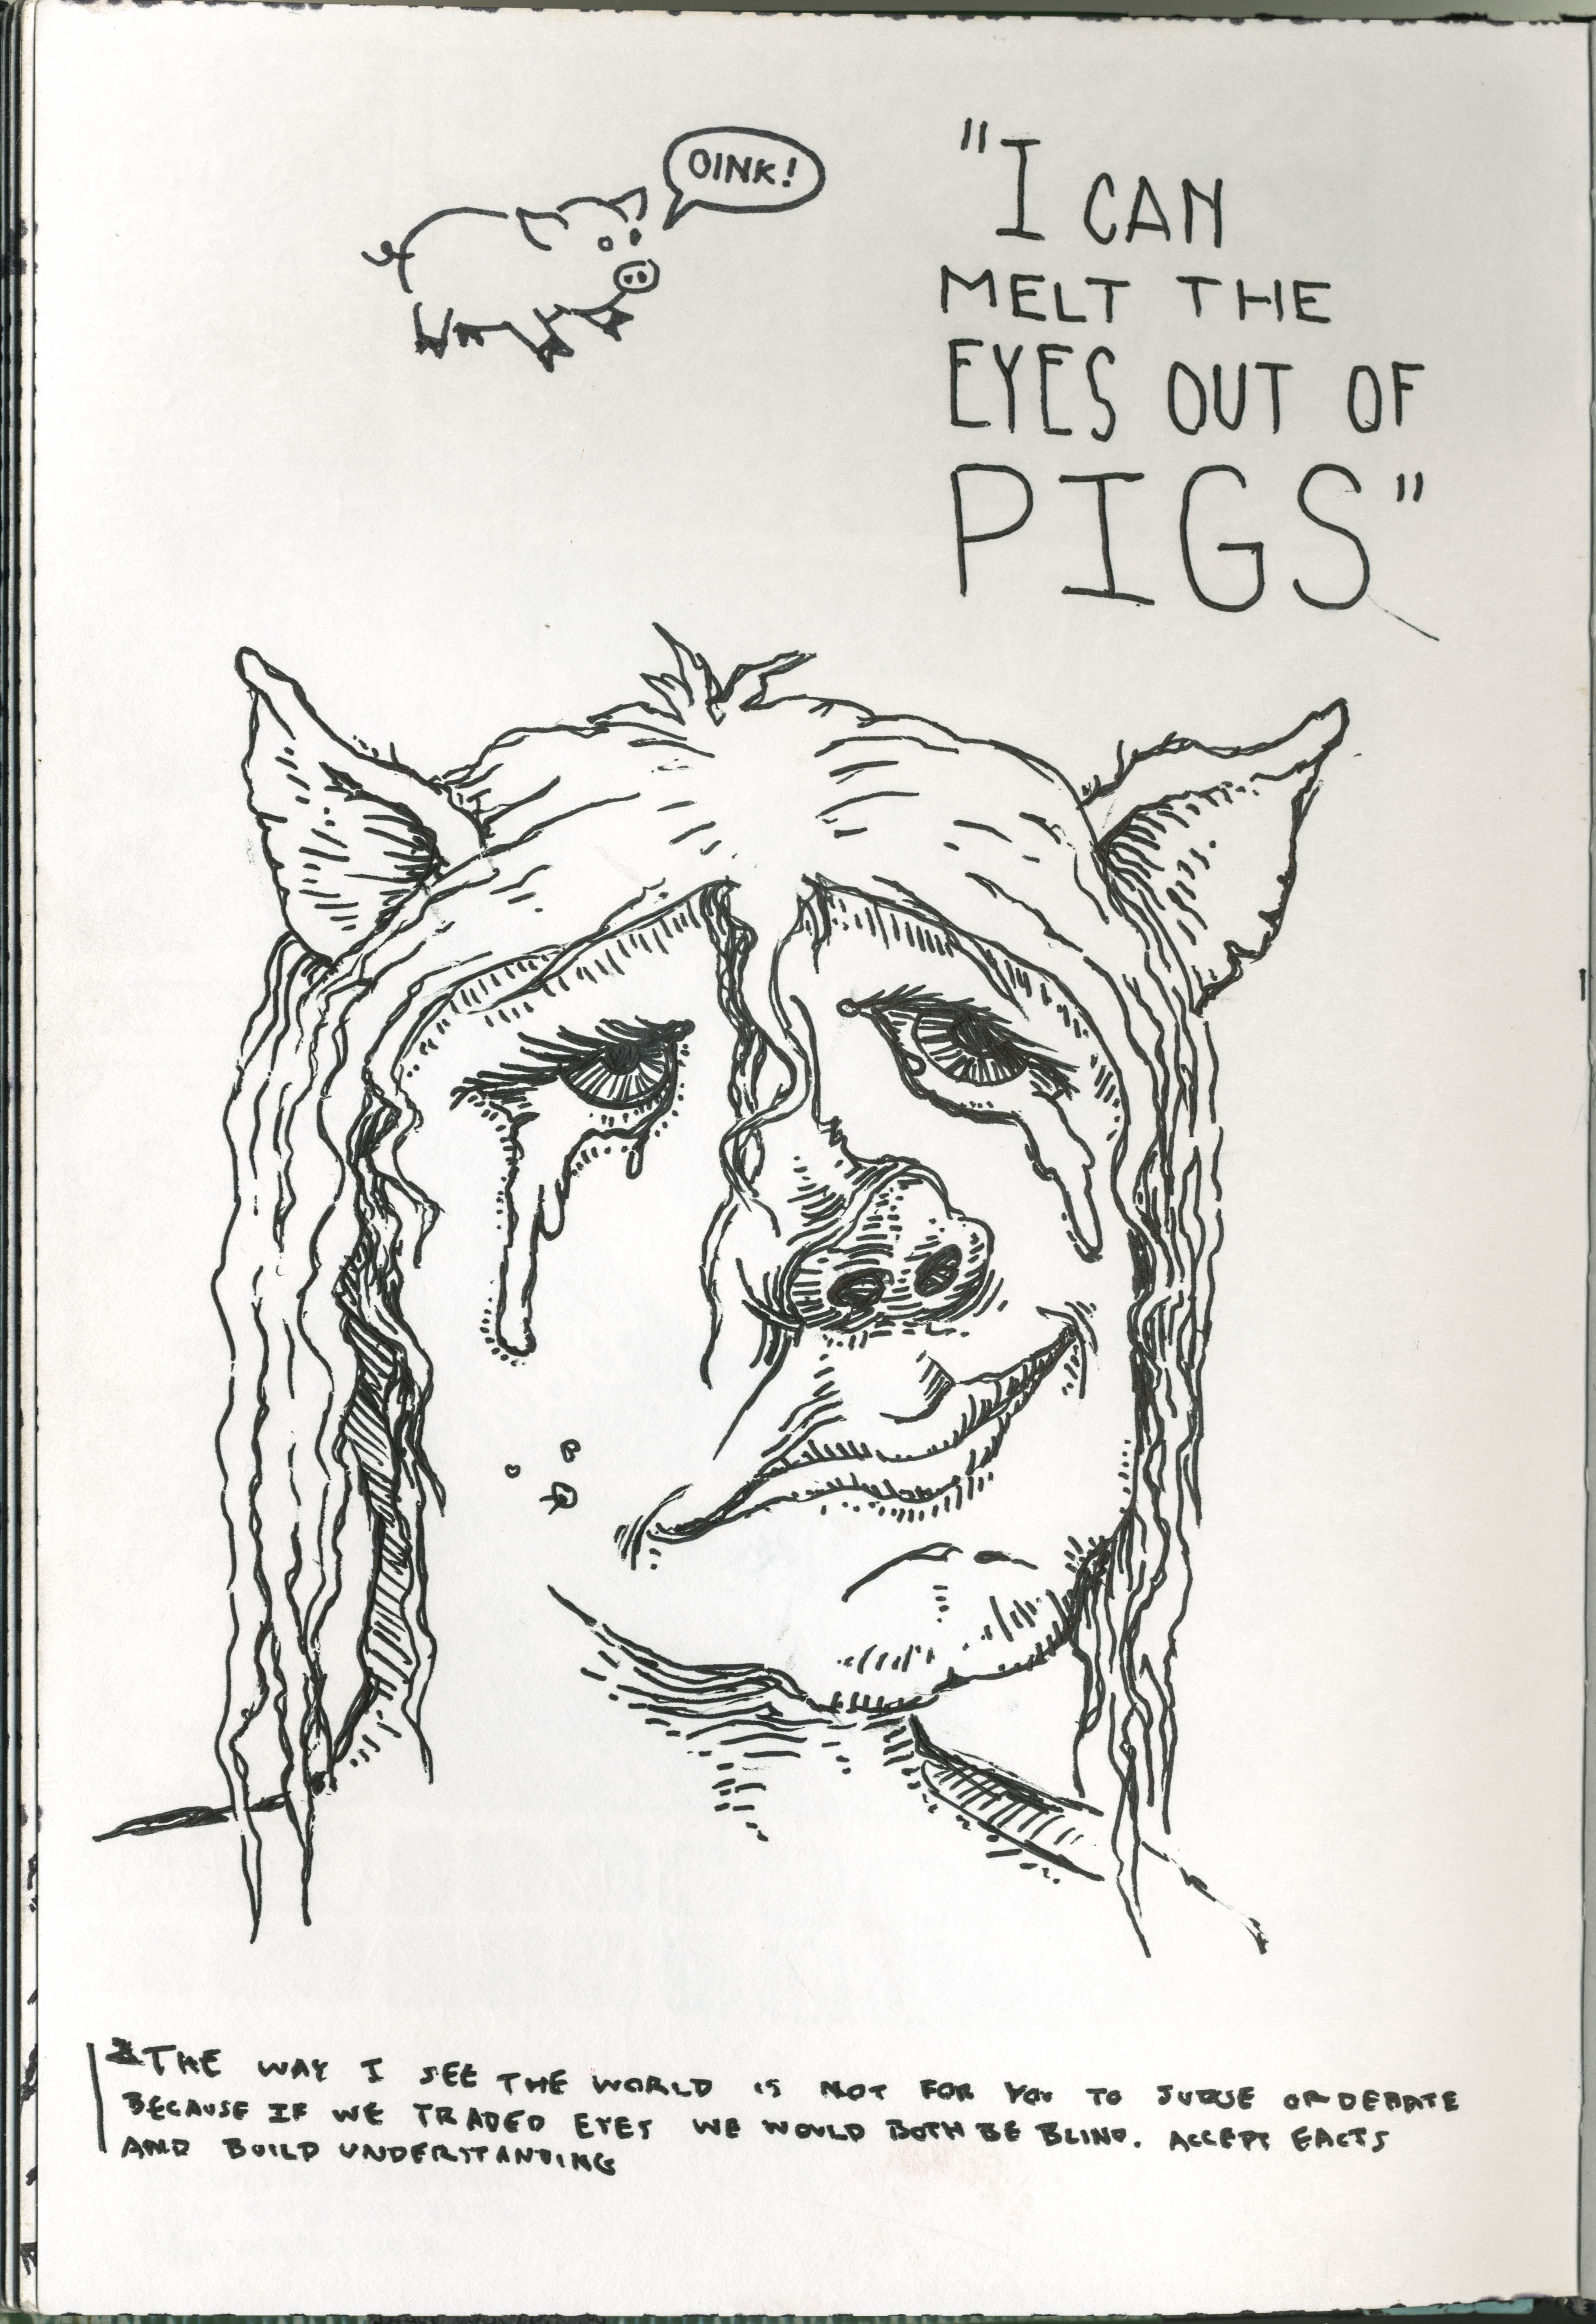 OINK!
"I CAN
MELT THE
EYES OUT OF
PIGS"
THE WAY I SEE THE WORLD IS NOT FOR YOU TO JUDGE OR DEBATE
BECAUSE IF WE TRADED EYES WE WOULD BOTH BE BLIND. ACCEPT FACTS
AND BUILD UNDERSTANDING